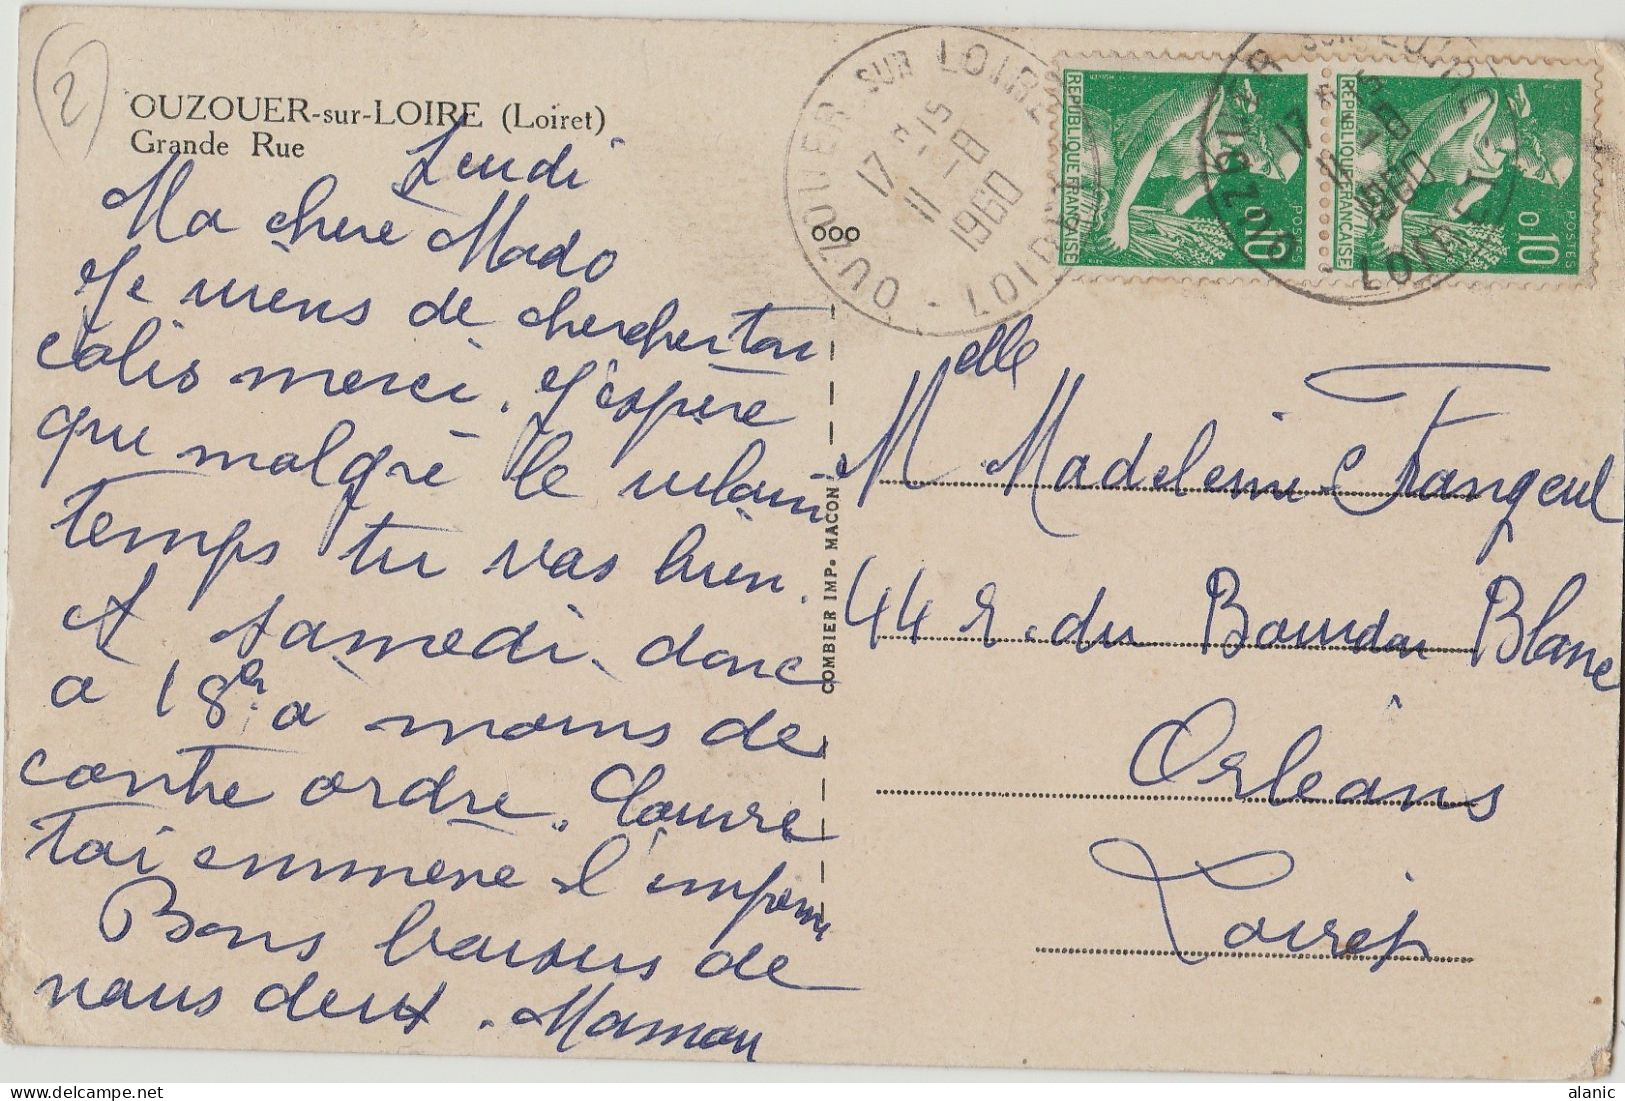 2
OUZOUER-sur-LOIRE (Loiret)
Grande Rue
Ma chère Mado
Je viens de chercher ton
colis merci. J'espère
que malgré le vilain
temps tu vas bien.
A samedi donc
a 18h a moins de
contre ordre. Couvre
toi emmène l'imper
Bons baisers de
nous deux. Maman
COMBIER IMP. MACON
OUZOUER SUR LOIRE
17 H 15
11 - 8
1960
LOIRET
OUZOUER SUR LOIRE
17 H 15
11 - 8
1960
LOIRET
REPUBLIQUE FRANÇAISE
POSTES
0,10
REPUBLIQUE FRANÇAISE
POSTES
0,10
ooo
Melle Madeleine
44 r. du Bourdon Blanc
Orléans
Loiret
alanic